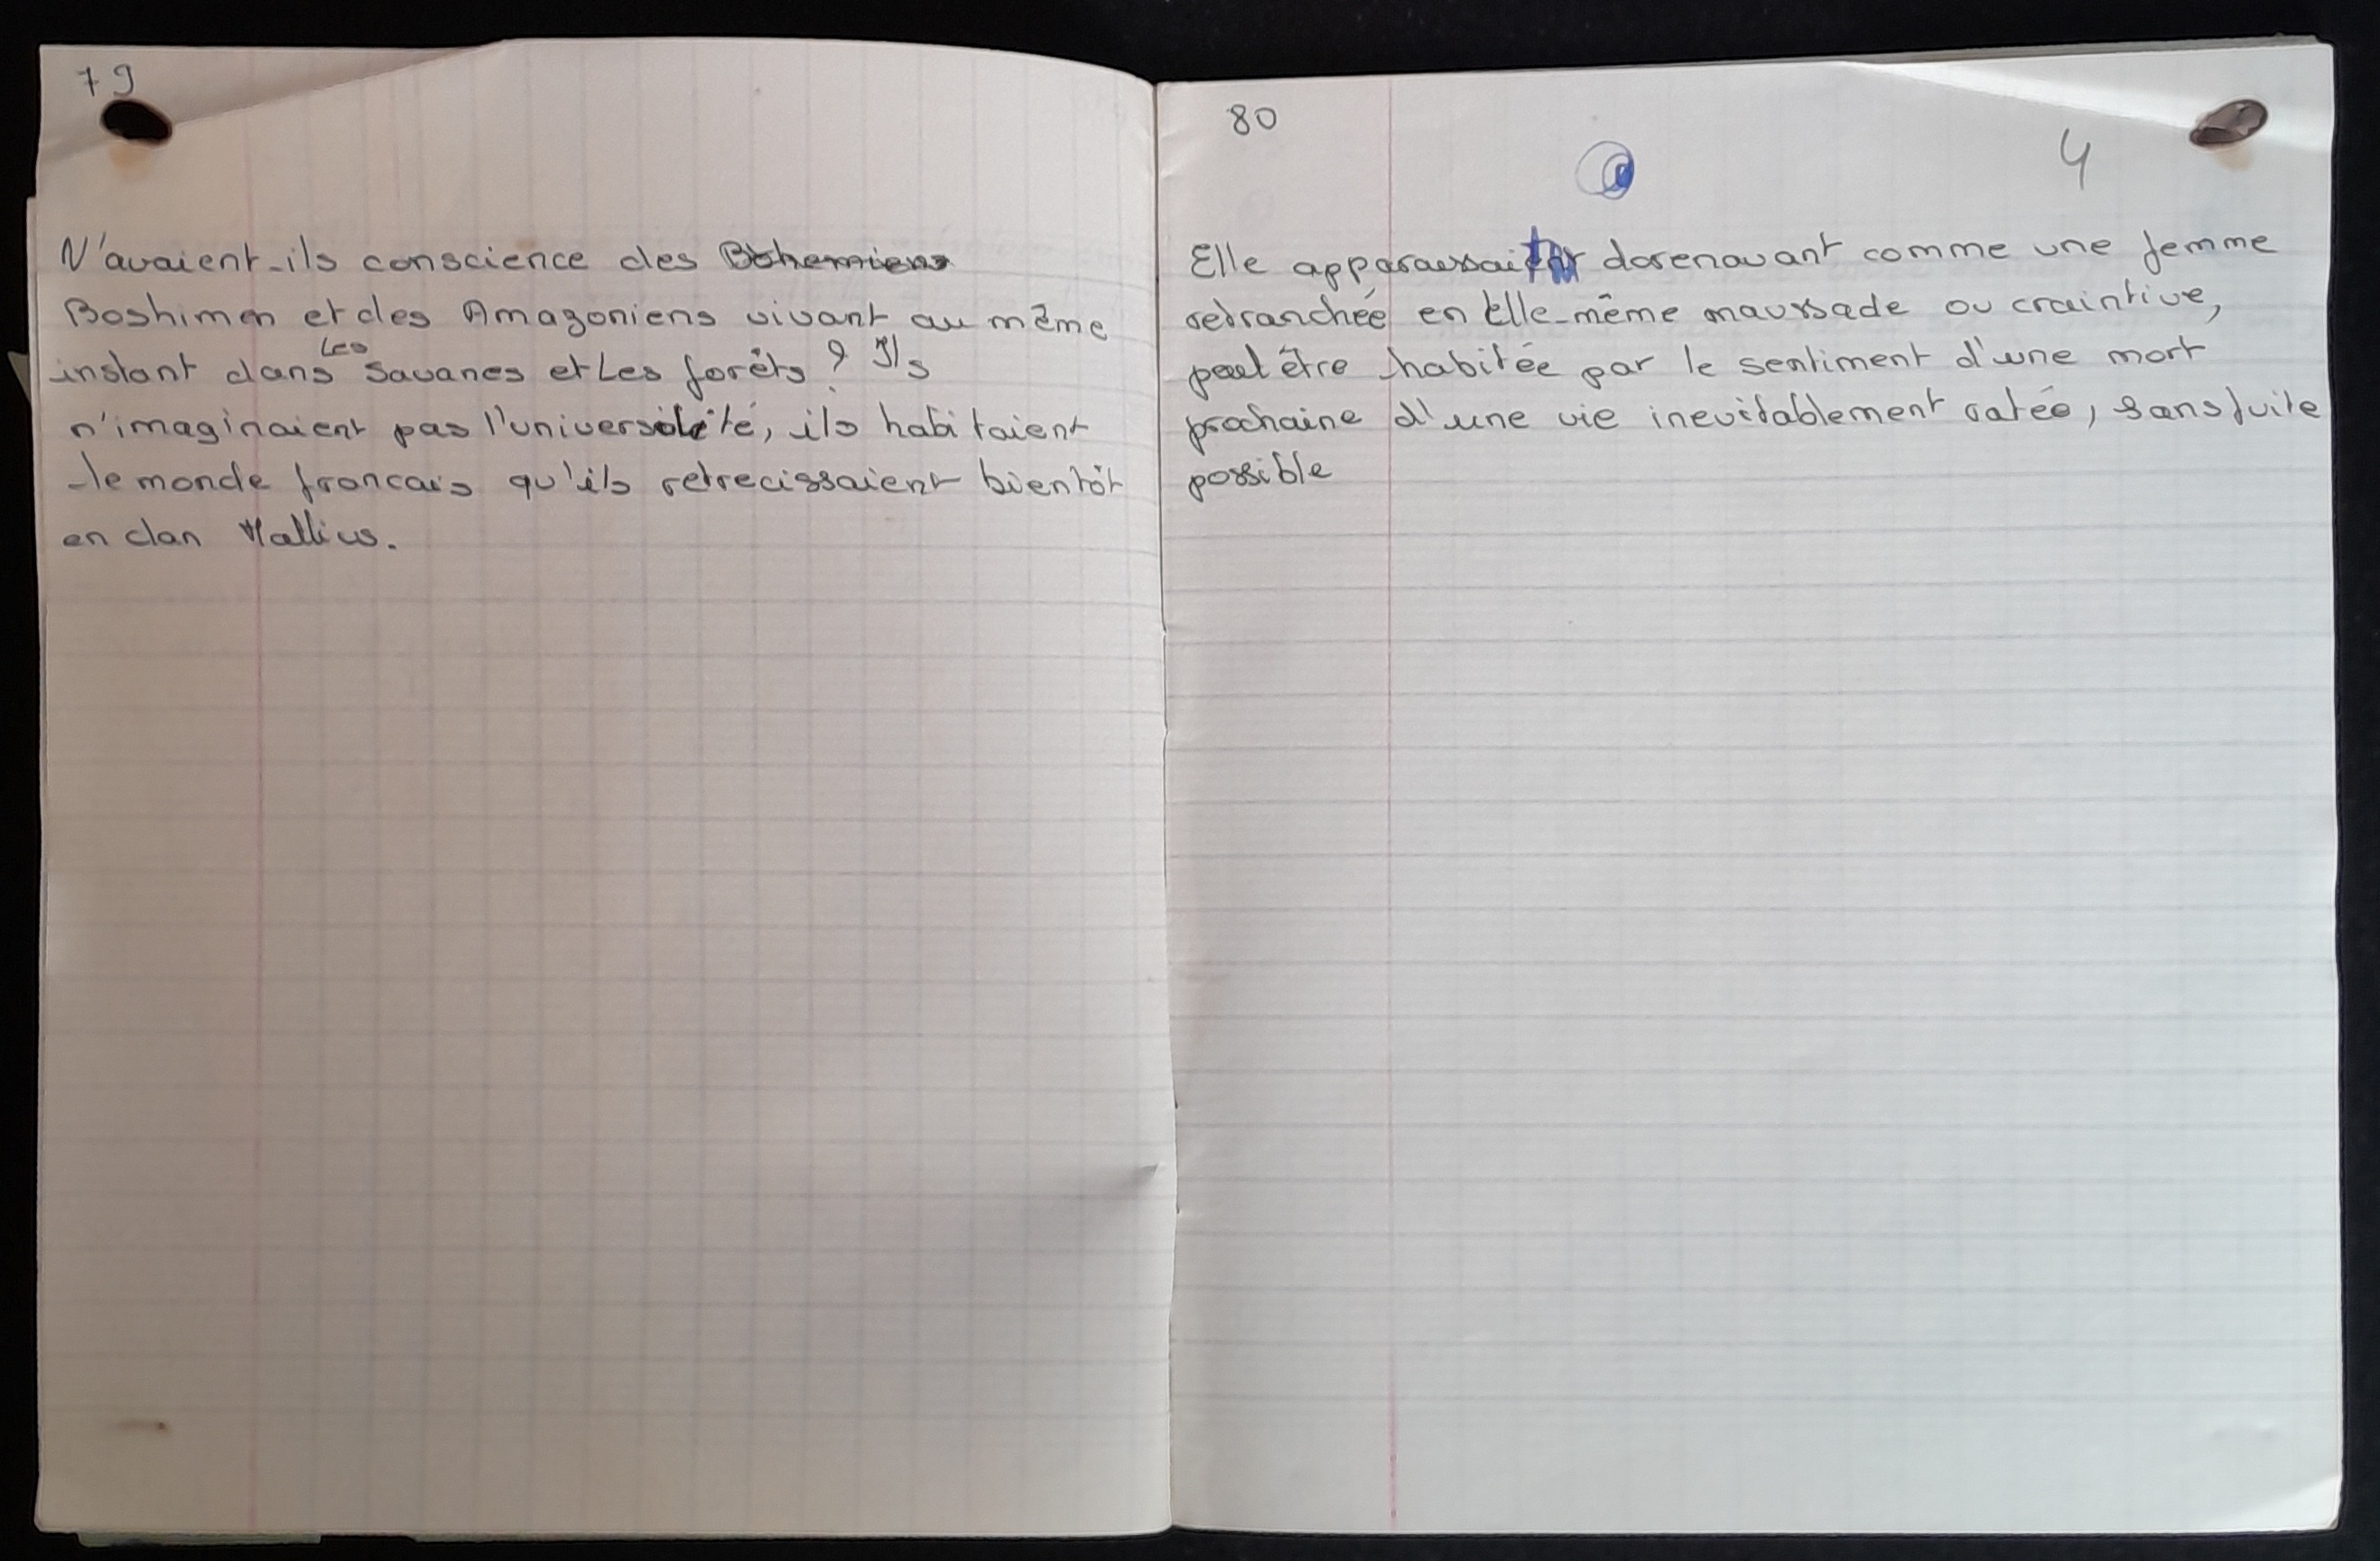 79
N'avaient-ils conscience des Bohemiens
Boshimen et des Amazoniens vivant au même
instant dans les savanes et les forêts ? Ils
n'imaginaient pas l'universalité, ils habitaient
le monde francais qu'ils retrecissaient bientôt
en clan Mallius.
80
4
Elle apparaissait dorenavant comme une femme
retranchée en elle-même maussade ou craintive,
peut être habitée par le sentiment d'une mort
prochaine d'une vie inevitablement ratée, sans fuite
possible